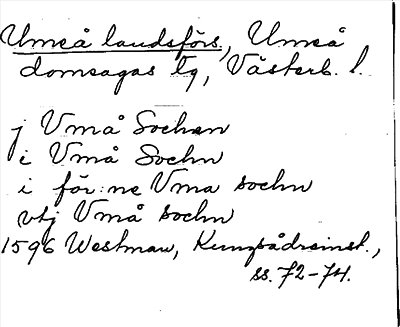 Umeå landsförs., Umeå
domsagas tg, Västerb. l.
j Vmå Sochan
i Vmå Sochn
i för:ne Vma sochn
vtj Vmå sochn
1596 Westman, Kungsådreinst.,
ss. 72-74.